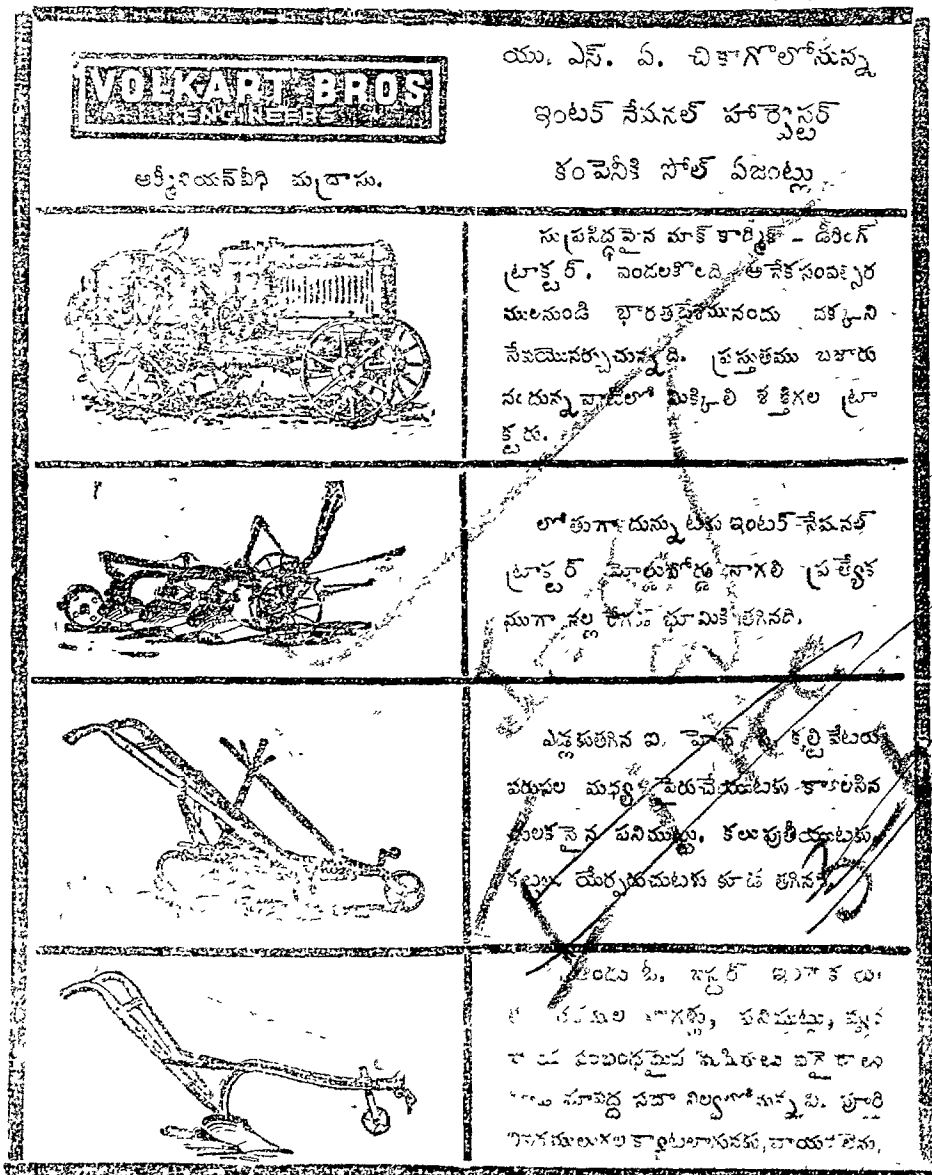 VOLKART BROS
ENGINEERS
ఆర్మీనియన్ వీధి మద్రాసు.
యు. ఎస్. ఏ. చికాగొలోనున్న
ఇంటర్ నేషనల్ హార్వెస్టర్
కంపెనీకి సోల్ ఏజంట్లు
సుప్రసిద్ధమైన మాక్ కార్మిక్ - డీరింగ్
ట్రాక్టర్. అనేకసంవత్సర
ములనుండి భారతదేశమునందు చక్కని
సేవయొనర్చుచున్నది. ప్రస్తుతము బజారు
నందున్న వాటిలో మిక్కిలి శక్తిగల ట్రా
క్టరు.
లోతుగా దున్నుటకు ఇంటర్ నేషనల్
ట్రాక్టర్ మోల్డుబోర్డు నాగలి ప్రత్యేక
ముగా నల్ల రేగడి భూమికి తగినది.
ఎడ్లకుతగిన ఐ. కల్టివేటరు
వరుసల మధ్య పైరుచేయుటకు కావలసిన
పనిముట్టు. కలుపుతీయుటకు,
యేర్పరుచుటకు కూడ తగినది
ఓ.
పనిముట్లు,
సంబంధమైన
మావద్ద సదా నిల్వలోనున్నవి. పూర్తి